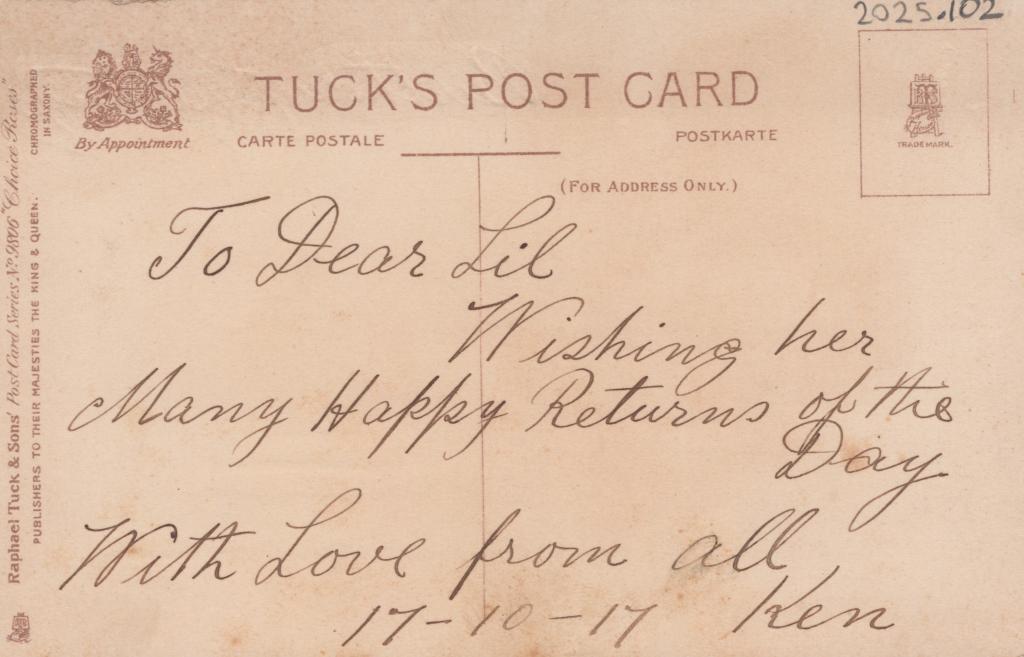 2025.102
TUCK'S POST CARD
By Appointment
CARTE POSTALE
POSTKARTE
(FOR ADDRESS ONLY.)
TRADE MARK.
To Dear Lil
Wishing her
Many Happy Returns of the
Day
With Love from all
17-10-17 Ken
Raphael Tuck & Sons' Post Card Series No. 9806 "Choice Roses"
PUBLISHERS TO THEIR MAJESTIES THE KING & QUEEN.
CHROMOGRAPHED
IN SAXONY.